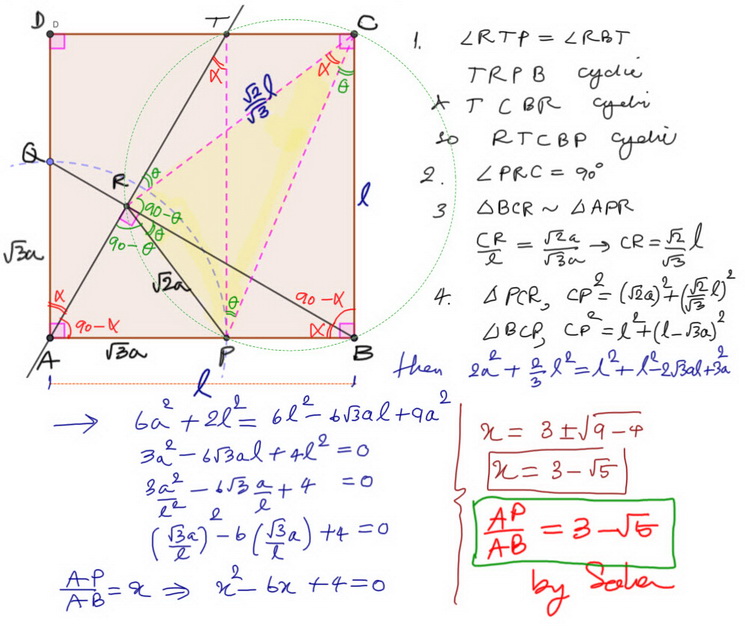 D D T C
α α θ
√2/√3 l
Q
R θ
90-θ
90-θ θ
l
√3a
√2a
α
90-α
θ
90-α
α
A √3a P B
l
1. ∠RTP = ∠RBT
TRPB cyclic
∧ TCBR cyclic
so RTCBP cyclic
2. ∠PRC = 90°
3 △BCR ~ △APR
CR/l = √2a/√3a → CR = √2/√3 l
4. △PCR, CP² = (√2a)² + (√2/√3 l)²
△BCP, CP² = l² + (l-√3a)²
then 2a² + 2/3 l² = l² + l² - 2√3al + 3a²
→ 6a² + 2l² = 6l² - 6√3al + 9a²
3a² - 6√3al + 4l² = 0
3a²/l² - 6√3 a/l + 4 = 0
(√3a/l)² - 6(√3a/l) + 4 = 0
AP/AB = x ⇒ x² - 6x + 4 = 0
x = 3 ± √9-4
x = 3 - √5
AP/AB = 3 - √5
by Saber